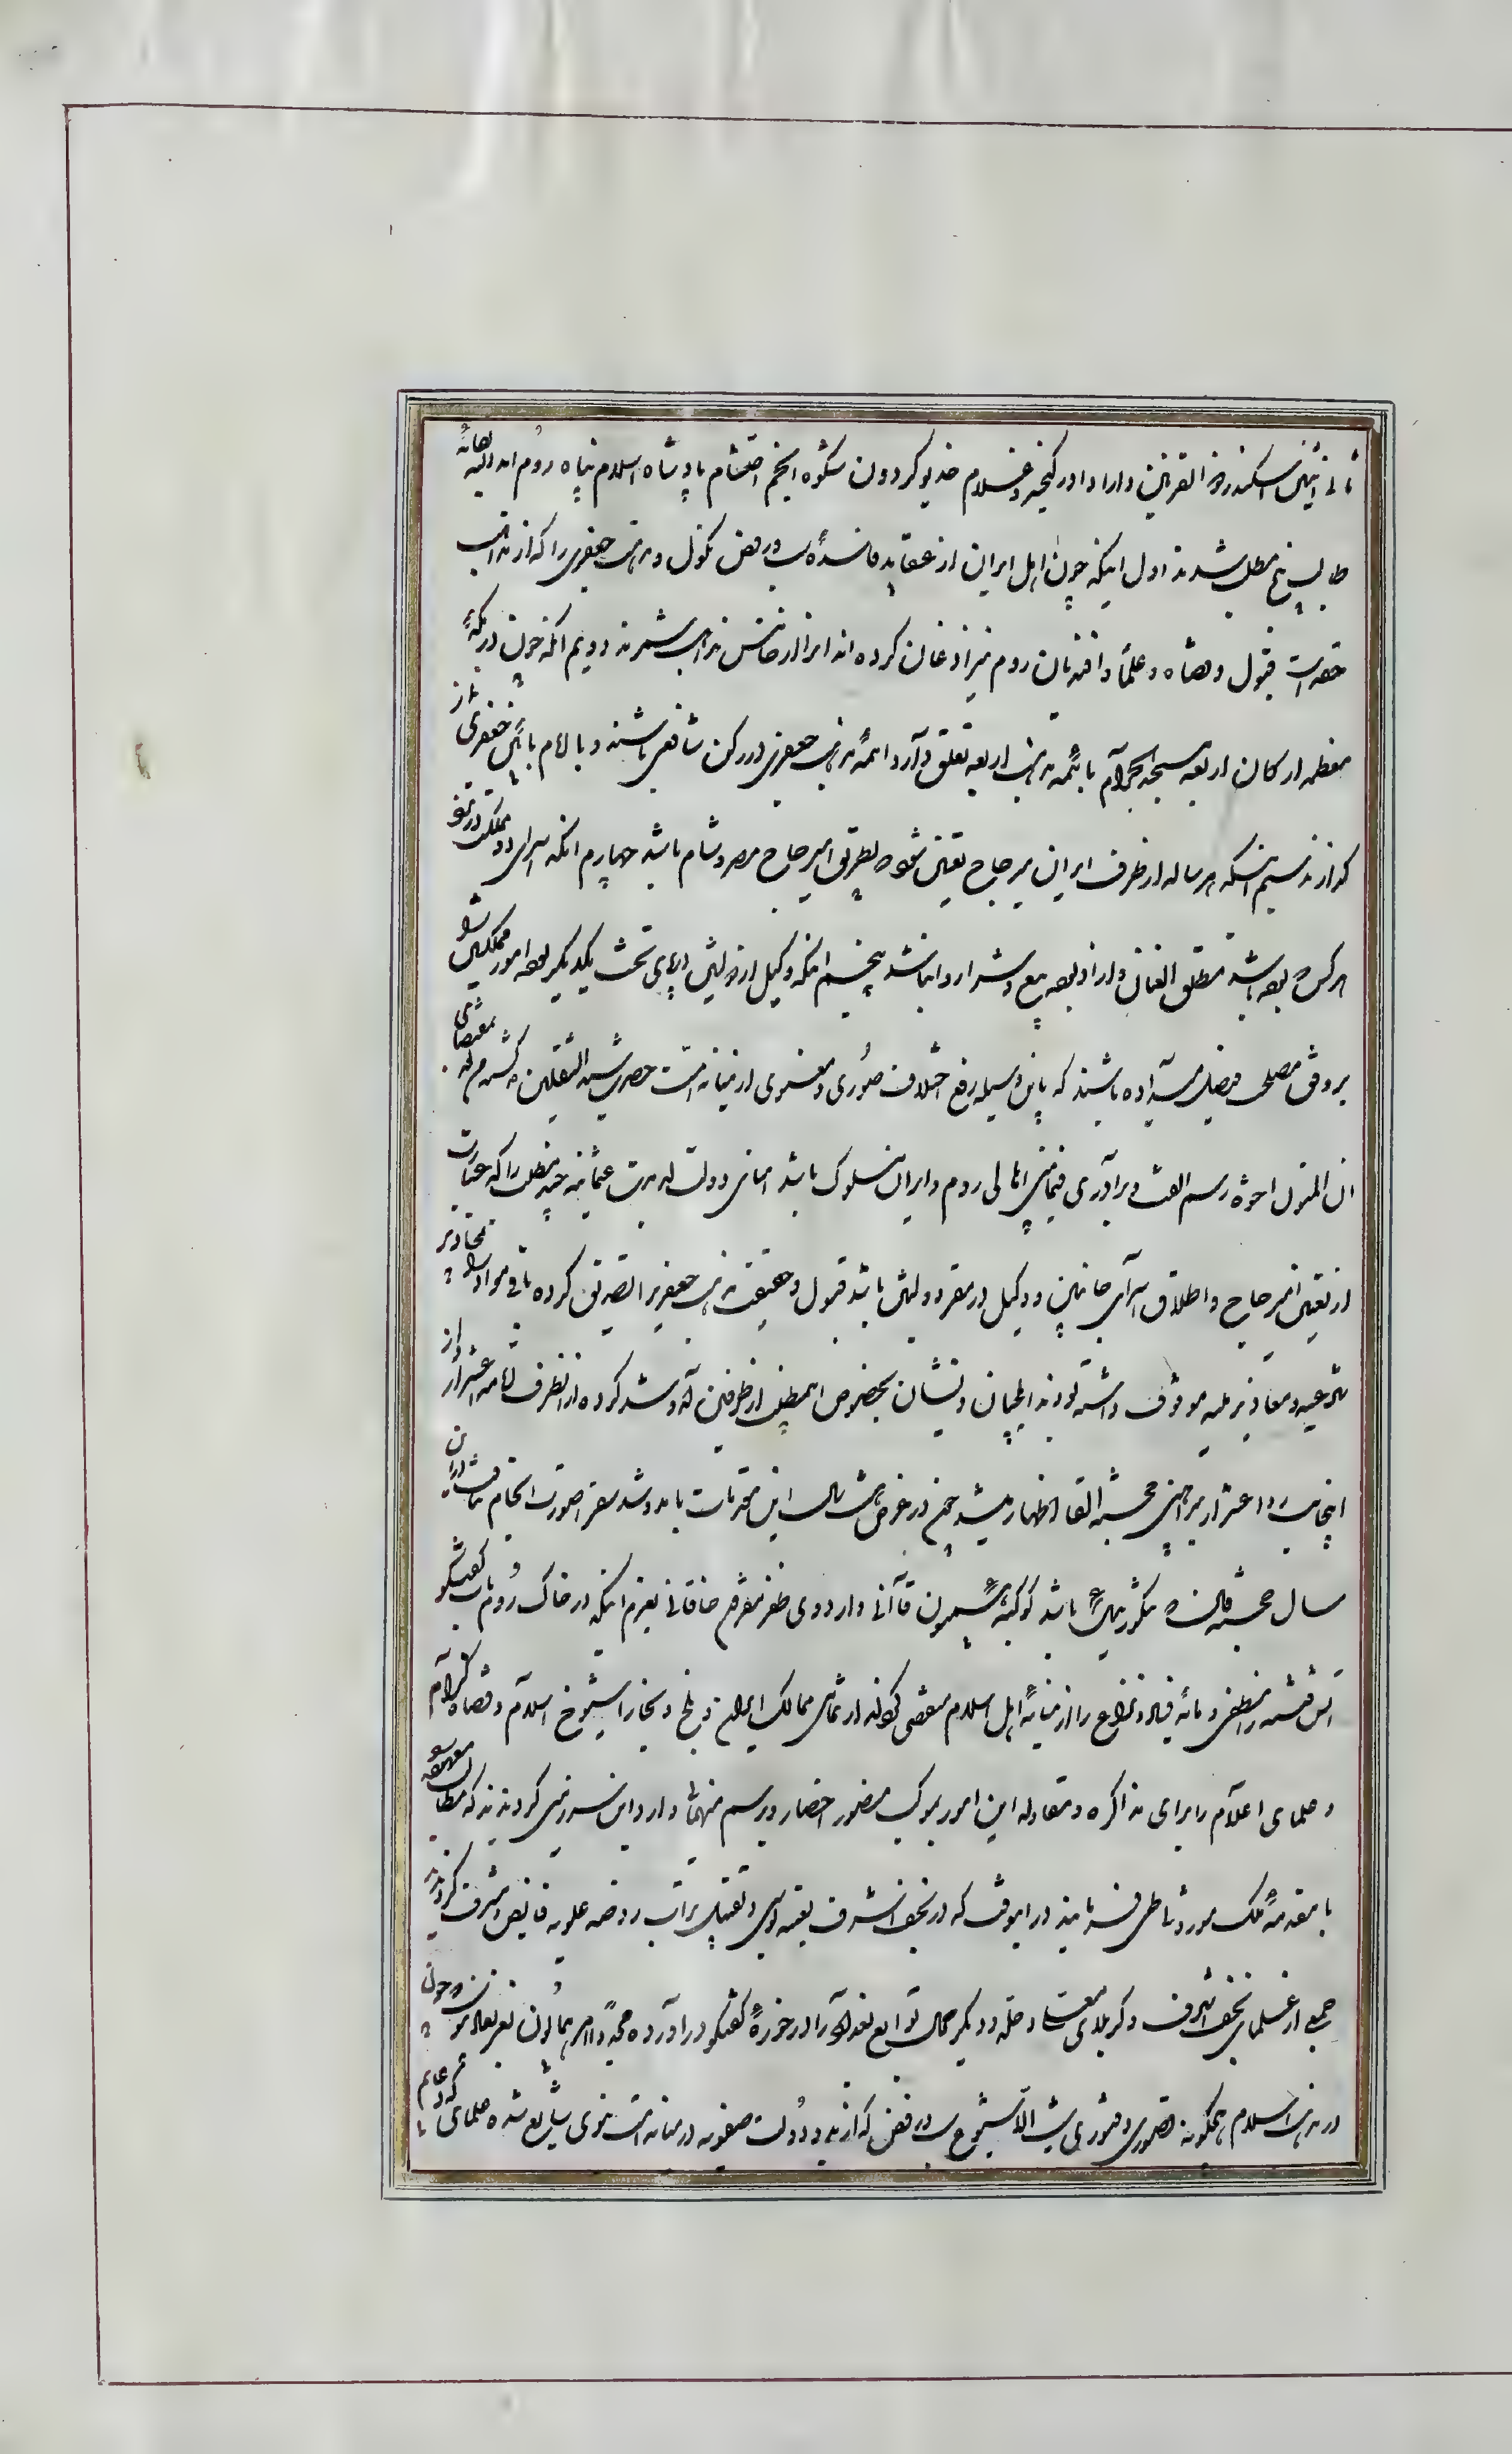 ثانی اثنین اسکندر ذو القرنین و دارا و داور کیخسرو غلام خدیو کردون شکوه انجم احتشام پادشاه اسلام پناه روم
طالب پنج مطلب شدند اول اینکه چون اهل ایران از عقاید فاسدهٔ سب و رفض نکول و مذهب جعفری را که از مذاهب
حقه است قبول و قضاه و علما و افندیان روم نیز اذعان کرده انرا خامس مذاهب شمرند دویم انکه چون در مکهٔ
معظمه ارکان اربعه مسجد الحرام بائمه مذهب اربعه تعلق دارد ائمهٔ مذهب جعفری در رکن شافعی باشند و با امام بآیین جعفری نماز
گذارند سیم اینکه هر ساله از طرف ایران میر حاج تعیین شود بطریق امیر حاج مصر و شام باشد چهارم انکه اسرای دو مملکت در نزد
هر کس بوده باشد مطلق العنان و آزاد بوده بیع و شرا روا نباشد پنجم انکه وکیل از دولتین در پای تخت یکدیگر بوده امور مملکتین را
بر وفق مصلحت فیصل میداده باشند که باین وسیله رفع اختلاف صوری و معنوی از میانه امت حضرت سید الثقلین شده من بعد بمقتضای
ان المؤمنون اخوة رسم الفت و برادری فیمابین اهالی روم و ایران مسلوک باشد امنای دولت ابد مدت عثمانیه چند مطلب را که عبارت
از تعیین امیر حاج و اطلاق اسرای جانبین و وکیل در مقر دولتین باشد قبول و حقیقت مذهب جعفریرا تصدیق کرده باقی مواد را بمحاذیر
شرعیه و معاذیر ملیه موقوف داشته بودند ایلچیان ذیشان بخصوص این مطلب از طرفین آمد و شد کرده از انطرف اقامه اعتذار و از
اینجانب رد اعتذار ببراهین خجسته القا اظهار میشد چون در عرض هشت سال این مقدمات بآمد و شد سفرا صورت انجام نیافت در این
سال خجسته فال که تنکوز ئیل باشد کوکبهٔ همیون قاآنی و اردوی ظفر مقرون خاقانی بعزم اینکه در خاک روم باب گفتگو شود
آتش فتنه را منطفی و مادهٔ فساد و نزاع را از میانهٔ اهل اسلام منتفی گردانند از تمامی ممالک ایران و بلخ و بخارا شیوخ اسلام و قضاه کرام
و علمای اعلام را برای مذاکره و مقاوله این امور بموکب منصور احضار و برسم منهضا وارد این سرزمین گردیدند که مطالب معهوده
با مقدمهٔ ملک موروثی طی فرمایند در اینوقت که در نجف اشرف بعتبه بوسی و تقبیل تراب روضه علویه فائض و مشرف گردیدند
جمیع از علمای نجف اشرف و کربلای معلی و حله و دیگر محال توابع بغداد را در خوزهٔ گفتگو در آورده مجددا امر همایون بعز نفاذ پیوست چون
در مذهب اسلام هیچگونه قصوری و فتوری نیست الا شیوع سب و رفض که از بدو دولت صفویه در میانه امت نبوی شایع شده علمای